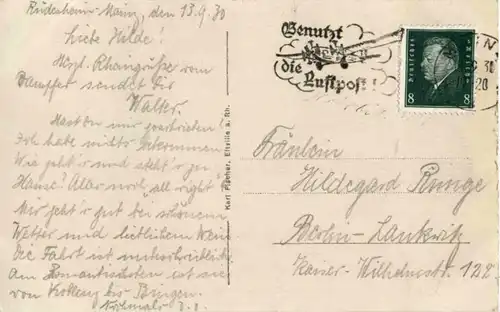 Rüdesheim-Mainz, den 13.9.30
Liebe Hilde!
Herzl. Rheingrüße vom
Dampfer sendet Dir
Walter.
Hast Du mir geschrieben?
Ich habe nichts bekommen.
Wie geht's und steht's zu
Hause? Alles noch "all right"?
Mir geht's gut bei schönem
Wetter und lieblichem Wein.
Die Fahrt ist unbeschreiblich.
Am romantischsten ist sie
von Koblenz bis Bingen.
Nochmals
Karl Fischer, Eltville a. Rh.
Benutzt
die
Luftpost!
Deutsches Reich
8 8
Fräulein
Hildegard Runge
Berlin-Lankwitz
Kaiser-Wilhelmstr. 122